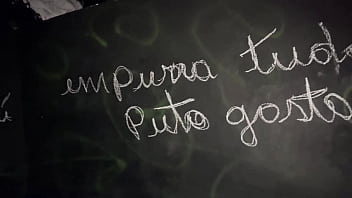 empurra tudo
Puta gosta